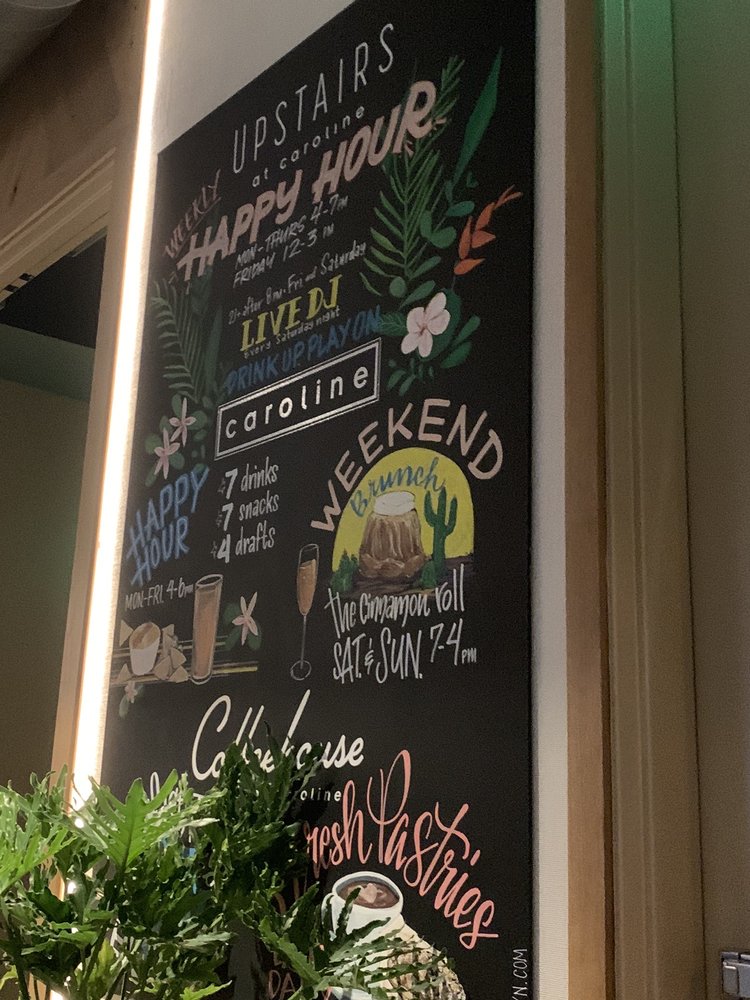 UPSTAIRS
at caroline
WEEKLY
HAPPY HOUR
MON-THURS 4-7PM
FRIDAY 12-3 PM
21+ after 8PM • Fri and Saturday
LIVE DJ
Every Saturday night
DRINK UP PLAY ON
caroline
HAPPY
HOUR
$7 drinks
$7 snacks
$4 drafts
MON-FRI. 4-6PM
WEEKEND
Brunch
the cinnamon roll
SAT. & SUN. 7-4 PM
Coffeehouse
Fresh Pastries